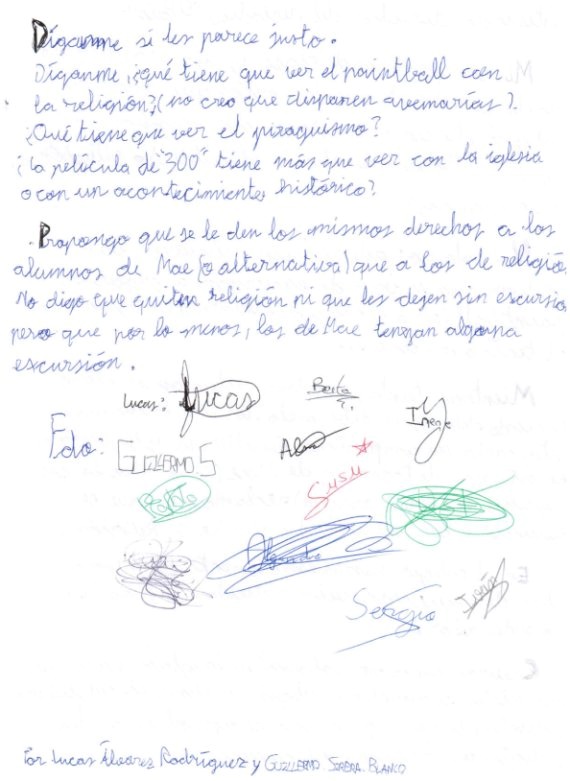 Díganme si les parece justo.
Díganme, ¿qué tiene que ver el paintball con
la religión? (no creo que disparen avemarías).
¿Qué tiene que ver el piragüismo?
¿La película de "300" tiene más que ver con la iglesia
o con un acontecimiento histórico?
.Propongo que se le den los mismos derechos a los
alumnos de Mae (o alternativa) que a los de religión.
No digo que quiten religión ni que les dejen sin excursión
pero que por lo menos, los de Mae tengan alguna
excursión.
Lucas: Lucas Berta Irene
Fdo: GUILLERMO.S
Susu
Alejandro
Sergio
Por Lucas Álvarez Rodríguez y GUILLERMO BLANCO